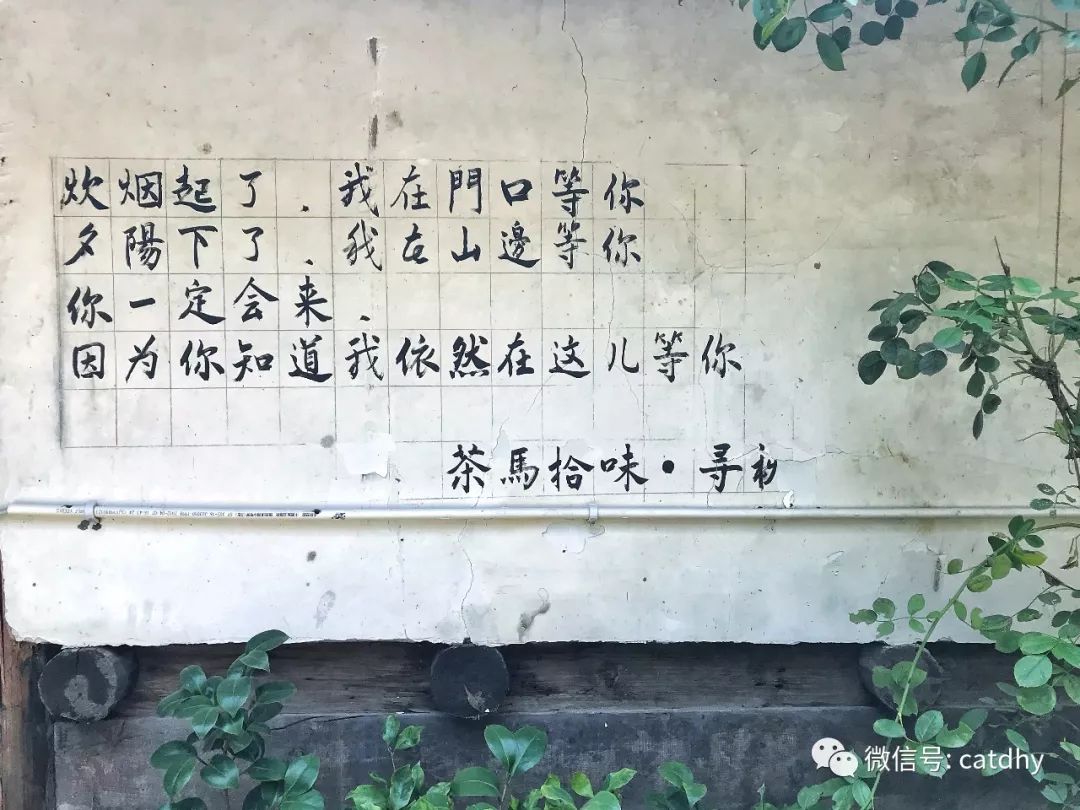 炊烟起了.我在門口等你
夕陽下了.我在山邊等你
你一定会来.
因为你知道我依然在这儿等你
茶馬拾味•寻
微信号: catdhy